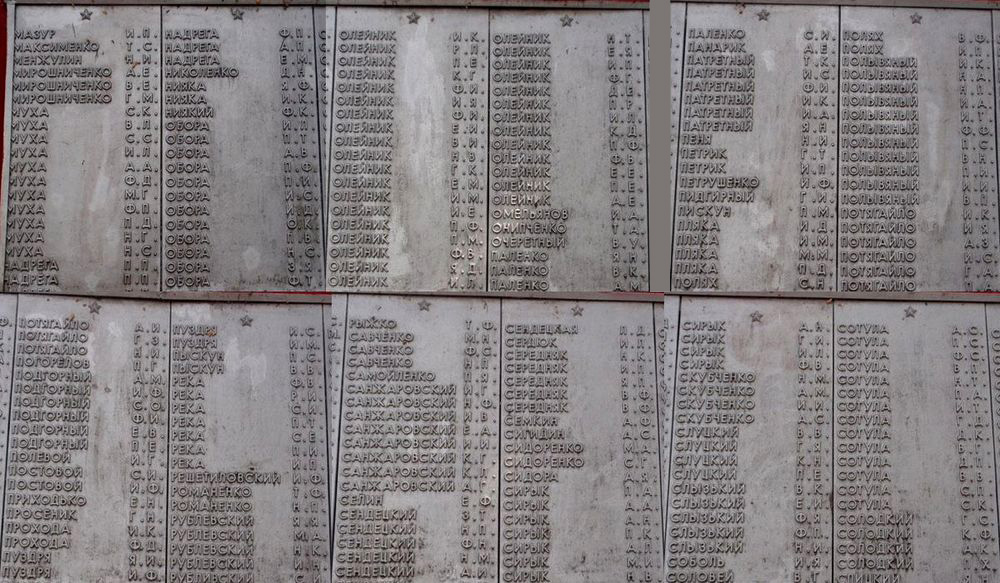 МАЗУР И.П.
МАКСИМЕНКО Т.С.
МЕНЖУЛИН Н.И.
МИРОШНИЧЕНКО А.Е.
МИРОШНИЧЕНКО В.Е.
МИРОШНИЧЕНКО Г.М.
МУХА С.К.
МУХА В.Л.
МУХА С.С.
МУХА И.Л.
МУХА А.А.
МУХА Ф.Д.
МУХА М.Г.
МУХА Ф.П.
МУХА П.Д.
МУХА Н.Г.
МУХА Н.С.
НАДРЕГА П.П.
НАДРЕГА П.П.
НАДРЕГА Ф.П.
НАДРЕГА А.П.
НАДРЕГА Е.М.
НИКОЛЕНКО Д.Н.
НИЯКА Я.Ф.
НИЯКА И.К.
НИЯКИЙ Ф.К.
ОБОРА И.П.
ОБОРА Т.П.
ОБОРА А.В.
ОБОРА Г.Ф.
ОБОРА П.И.
ОБОРА И.С.
ОБОРА И.Д.
ОБОРА О.К.
ОБОРА П.В.
ОБОРА Н.С.
ОБОРА З.Я.
ОБОРА Ф.Т.
ОЛЕЙНИК И.К.
ОЛЕЙНИК Р.П.
ОЛЕЙНИК П.Е.
ОЛЕЙНИК К.Г.
ОЛЕЙНИК И.Ф.
ОЛЕЙНИК И.Я.
ОЛЕЙНИК Ф.И.
ОЛЕЙНИК Е.И.
ОЛЕЙНИК В.И.
ОЛЕЙНИК Н.В.
ОЛЕЙНИК Г.К.
ОЛЕЙНИК Е.М.
ОЛЕЙНИК И.М.
ОЛЕЙНИК И.Е.
ОЛЕЙНИК П.Ф.
ОЛЕЙНИК П.М.
ОЛЕЙНИК Ф.В.
ОЛЕЙНИК Я.Д.
ОЛЕЙНИК И.Г.
ОЛЕЙНИК Н.Т.
ОЛЕЙНИК Е.Я.
ОЛЕЙНИК И.П.
ОЛЕЙНИК Ф.Г.
ОЛЕЙНИК Д.Е.
ОЛЕЙНИК П.Р.
ОЛЕЙНИК И.П.
ОЛЕЙНИК К.Д.
ОЛЕЙНИК П.Ф.
ОЛЕЙНИК Ф.В.
ОЛЕЙНИК П.Е.
ОЛЕЙНИК Е.Е.
ОЛЕЙНИК А.Е.
ОМЕЛЬЯНОВ И.А.
ОНИПЧЕНКО Т.А.
ОЧЕРЕТНЫЙ В.У.
ПАЛЕНКО Я.Н.
ПАЛЕНКО В.К.
ПАЛЕНКО А.М.
ПАЛЕНКО С.И.
ПАНАРИК А.Е.
ПАТРЕТНЫЙ Т.К.
ПАТРЕТНЫЙ Н.А.
ПАТРЕТНЫЙ Ф.И.
ПАТРЕТНЫЙ И.К.
ПАТРЕТНЫЙ И.А.
ПАТРЕТНЫЙ Я.Н.
ПЕНЯ Н.И.
ПЕТРИК Г.Т.
ПЕТРИК И.П.
ПЕТРУШЕНКО И.Ф.
ПИДГИРНЫЙ Г.И.
ПИСКУН П.М.
ПЛЯКА И.Д.
ПЛЯКА И.М.
ПЛЯКА М.М.
ПЛЯКА П.Д.
ПОЛЯХ С.Н.
ПОЛЯХ В.Ф.
ПОЛЯХ И.П.
ПОЛЫВЯНЫЙ
ПОЛЫВЯНЫЙ
ПОЛЫВЯНЫЙ
ПОЛЫВЯНЫЙ
ПОЛЫВЯНЫЙ
ПОЛЫВЯНЫЙ
ПОЛЫВЯНЫЙ
ПОЛЫВЯНЫЙ
ПОЛЫВЯНЫЙ
ПОЛЫВЯНЫЙ
ПОЛЫВЯНЫЙ
ПОТЯГАЙЛО
ПОТЯГАЙЛО И.Я.
ПОТЯГАЙЛО А.З.
ПОТЯГАЙЛО И.С.
ПОТЯГАЙЛО Г.А.
ПОТЯГАЙЛО П.А.
ПОТЯГАЙЛО А.И.
ПОТЯГАЙЛО Г.З.
ПОТЯГАЙЛО Н.И.
ПОГОРЕЛОВ П.Г.
ПОДГОРНЫЙ А.М.
ПОДГОРНЫЙ И.Ф.
ПОДГОРНЫЙ С.О.
ПОДГОРНЫЙ Ф.И.
ПОДГОРНЫЙ Е.В.
ПОДГОРНЫЙ П.Е.
ПОЛЕВОЙ И.Г.
ПОСТОВОЙ С.И.
ПОСТОВОЙ И.Ф.
ПРИХОДЬКО Е.Н.
ПРОСЕНИК Г.Н.
ПРОХОДА И.К.
ПРОХОДА Ф.Д.
ПУЗДРЯ Я.И.
ПУЗДРЯ И.Ф.
ПУЗДРЯ И.С.
ПУЗДРЯ И.М.
ПЫСКУН П.С.
ПЫСКУН В.В.
РЕКА Ф.В.
РЕКА Р.И.
РЕКА С.И.
РЕКА П.Т.
РЕКА С.Е.
РЕКА И.П.
РЕКА И.П.
РЕШЕТИЛОВСКИЙ И.Ф.
РОМАНЕНКО Т.Ф.
РОМАНЕНКО Н.П.
РУБЛЕВСКИЙ Я.Я.
РУБЛЕВСКИЙ М.А.
РУБЛЕВСКИЙ Н.К.
РУБЛЕВСКИЙ И.И.
РУБЛЕВСКИЙ
РЫЖКО Т.Ф.
САВЧЕНКО М.Н.
САВЧЕНКО Ф.С.
САВЧЕНКО Н.П.
САМОЙЛЕНКО П.Я.
САНЖАРОВСКИЙ И.Г.
САНЖАРОВСКИЙ Н.Ф.
САНЖАРОВСКИЙ И.В.
САНЖАРОВСКИЙ Е.А.
САНЖАРОВСКИЙ И.И.
САНЖАРОВСКИЙ К.Г.
САНЖАРОВСКИЙ К.П.
САНЖАРОВСКИЙ А.Г.
СЕЛИН Е.Ф.
СЕНДЕЦКИЙ З.Т.
СЕНДЕЦКИЙ И.П.
СЕНДЕЦКИЙ Ф.Н.
СЕНДЕЦКИЙ Н.М.
СЕНДЕЦКИЙ А.И.
СЕНДЕЦКАЯ П.Д.
СЕРДЮК И.П.
СЕРЕДНЯК Н.К.
СЕРЕДНЯК И.П.
СЕРЕДНЯК Я.П.
СЕРЕДНЯК В.Ф.
СЕРЕДНЯК В.Ф.
СЕМКИН А.Ф.
СИГИДИН А.С.
СИДОРЕНКО М.А.
СИДОРЕНКО С.Г.
СИДОРА А.Я.
СИРЫК А.П.
СИРЫК П.П.
СИРЫК А.Н.
СИРЫК П.К.
СИРЫК А.П.
СИРЫК М.И.
СИРЫК Н.В.
СИРЫК А.Н.
СИРЫК Г.И.
СИРЫК И.И.
СИРЫК Ф.В.
СКУБЧЕНКО Н.М.
СКУБЧЕНКО А.М.
СКУБЧЕНКО И.И.
СКУБЧЕНКО А.С.
СЛУЦКИЙ В.В.
СЛУЦКИЙ Г.Я.
СЛУЦКИЙ К.Н.
СЛУЦКИЙ П.Е.
СЛЫЗЬКИЙ В.К.
СЛЫЗЬКИЙ Е.И.
СЛЫЗЬКИЙ Ф.Я.
СЛЫЗЬКИЙ Ф.П.
СЛЫЗЬКИЙ Н.И.
СОБОЛЬ И.Я.
СОЛОВЕЙ Г.И.
СОТУЛА А.С.
СОТУЛА П.С.
СОТУЛА Ф.П.
СОТУЛА В.П.
СОТУЛА Н.Т.
СОТУЛА П.А.
СОТУЛА И.Т.
СОТУЛА Г.Д.
СОТУЛА Д.К.
СОТУЛА В.Г.
СОТУЛА Д.П.
СОТУЛА В.В.
СОТУЛА С.П.
СОТУЛА С.К.
СОЛОДКИЙ Г.С.
СОЛОДКИЙ Ф.П.
СОЛОДКИЙ А.К.
СОЛОДКИЙ П.Х.